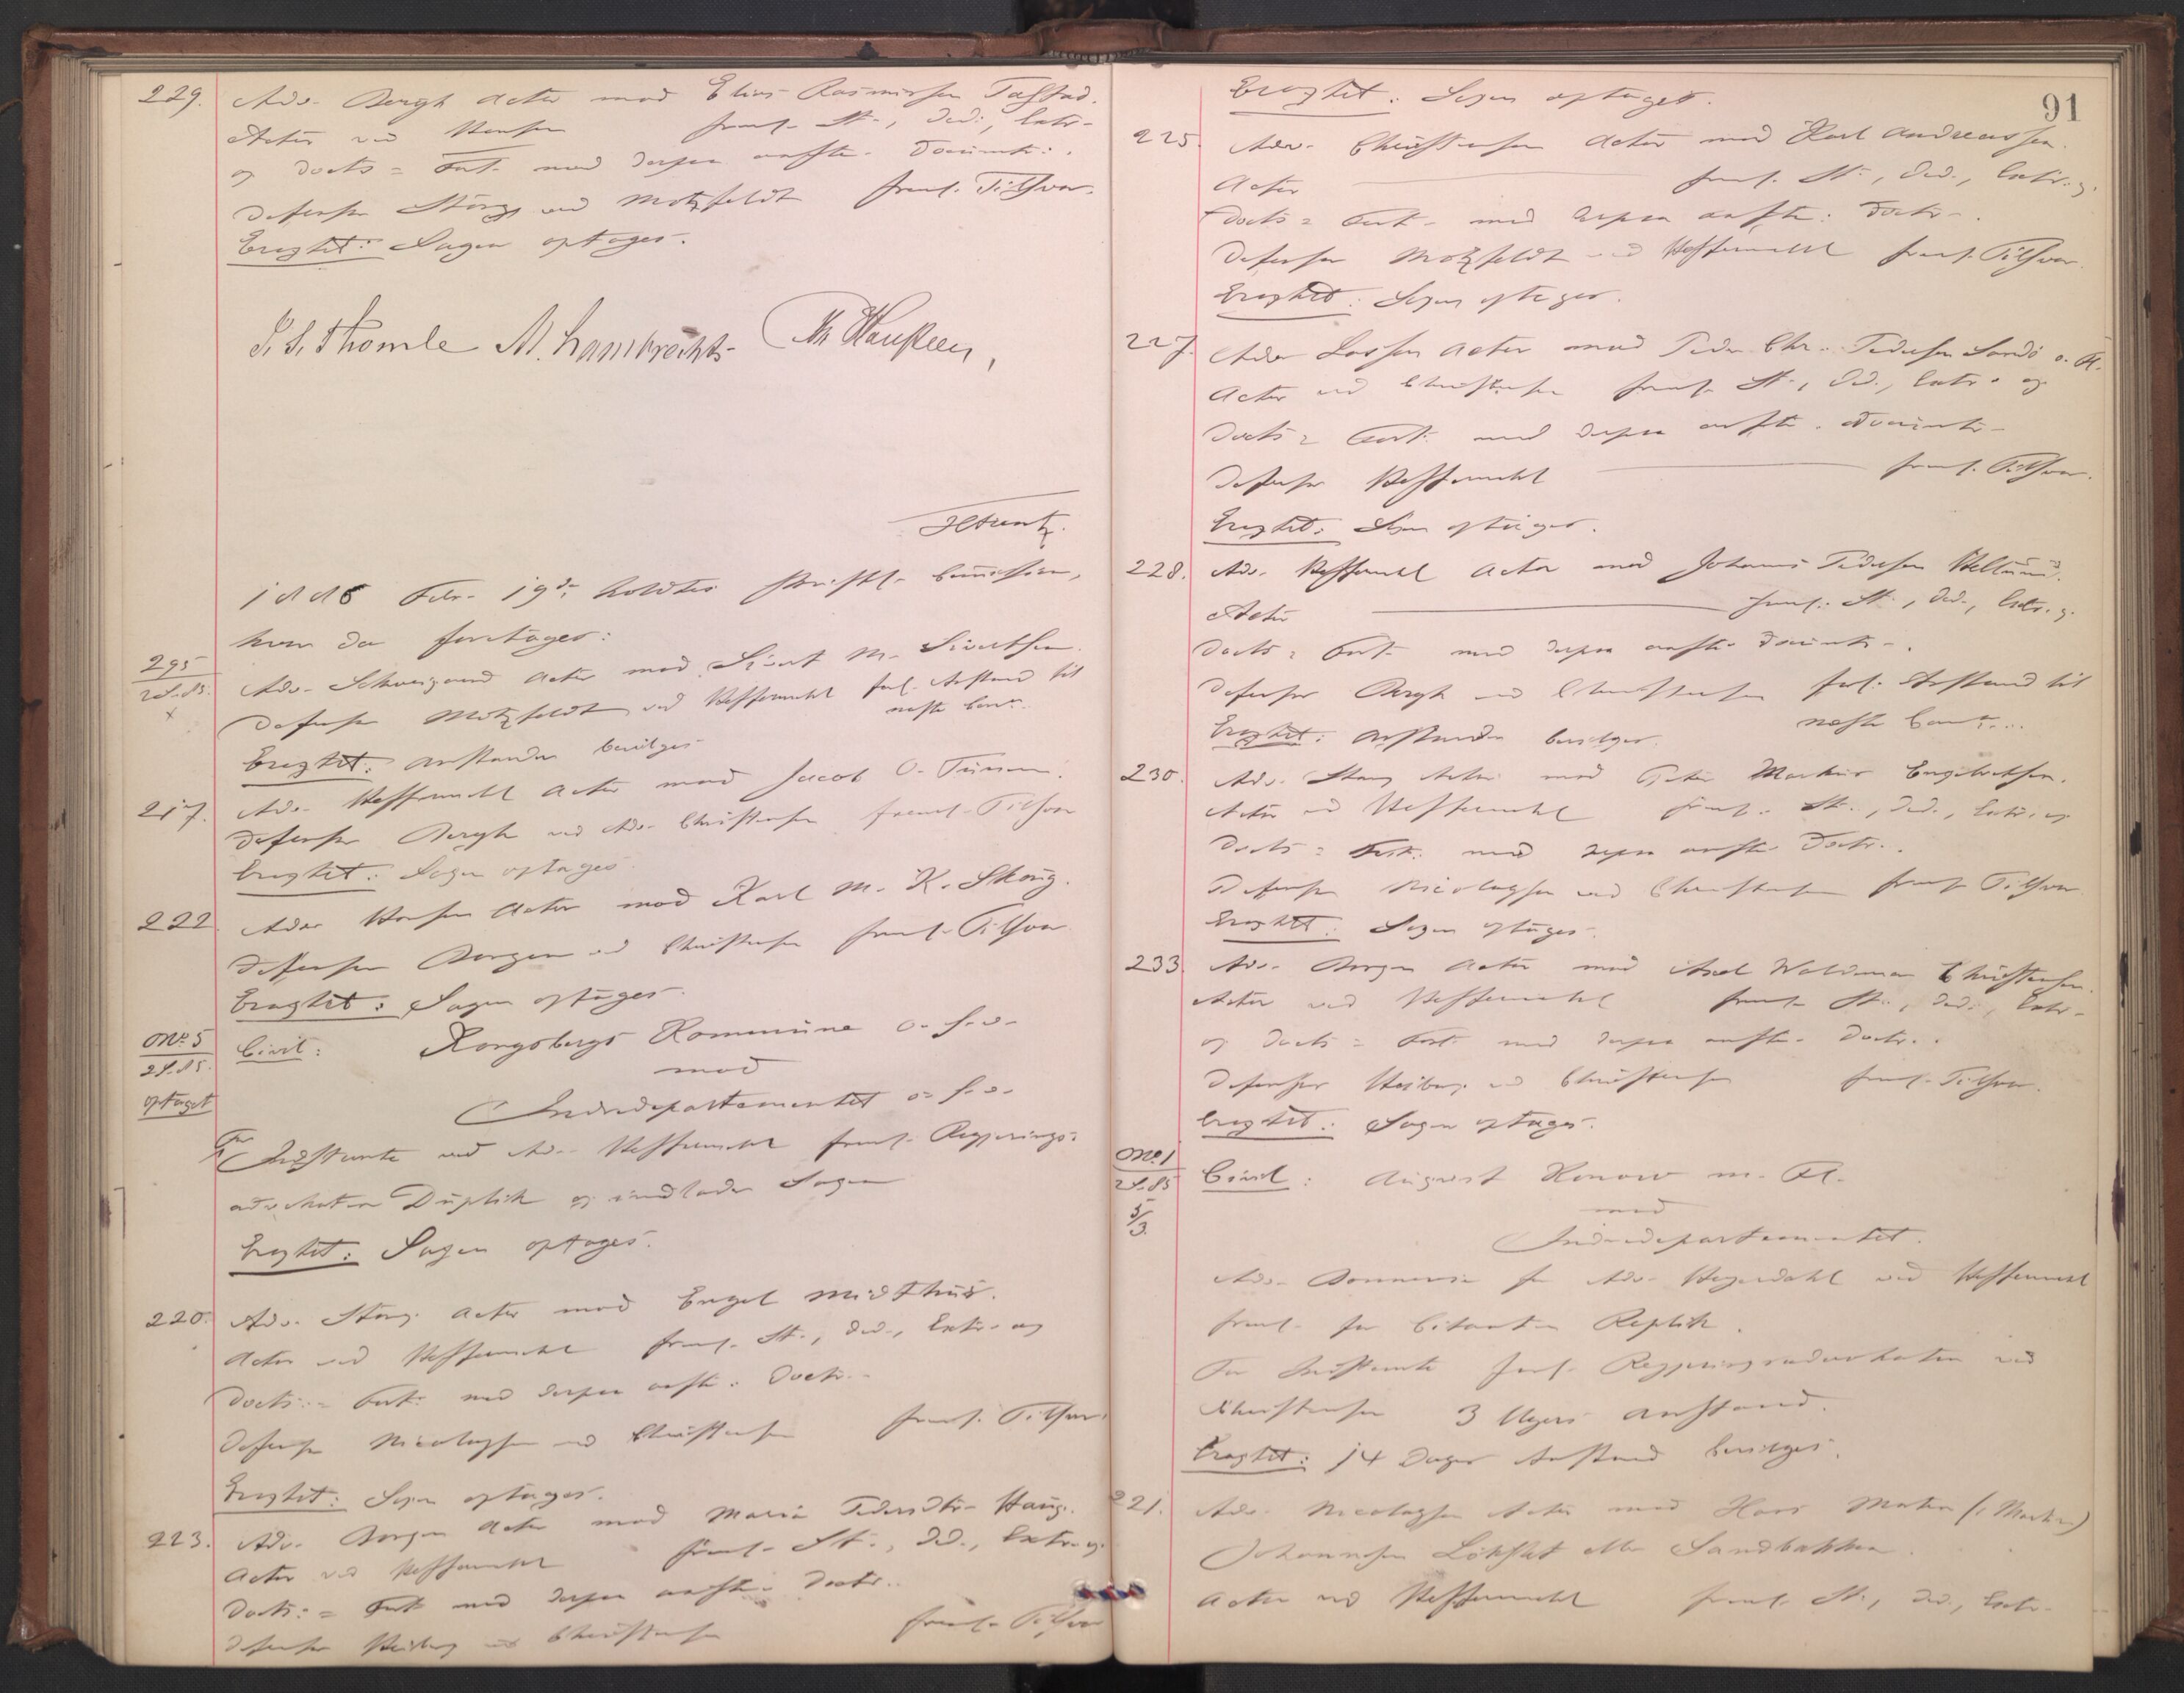 229. Adv. Bergh Actor mod Elias Rasmussen Tastad.
Actor ved Hansen freml. St., Ded., Extr.
og Docts = Fort. med derpaa anfte. Documtr.
Defensor Stang ved Motzfeldt freml. Tilsvar.
Eragtet: Sagen optages.
I. S. Thomle M. Lambrechts
1886 Febr. 19de holdtes skriftl. Commission,
hvor da foretages:
295
28.85.
x
Adv. Schweigaard Actor mod Sivert M. Sivertsen.
Defensor Motzfeldt ved Heffermehl forl. Anstand til
næste Comn.
Eragtet: Anstanden bevilges
217. Adv. Heffermehl Actor mod Jacob O. Tunem.
Defensor Bergh ved Adv. Christensen freml. Tilsvar
Eragtet: Sagen optages
222. Adv. Hansen Actor mod Karl M. K. Skoug.
Defensor Borgen ved Christensen freml. Tilsvar
Eragtet: Sagen optages.
No 5
28.85.
optaget
Civil: Kongsbergs Kommune o. s. v.
mod
Indredepartementet o. s. v.
For Indstevnte ved Adv. Heffermehl freml. Regjerings-
advokaten Duplik og indlader Sagen
Eragtet: Sagen optages.
220. Adv. Stang Actor mod Engel Midthus.
Actor ved Heffermehl freml. St., Ded., Extr. og
Docts. = Fort. med derpaa anfte. Doctr.
Defensor Nicolaysen ved Christensen freml. Tilsvar.
Eragtet: Sagen optages.
223. Adv. Borgen Actor mod Maria Pedersdtr. Haug.
Actor ved Heffermehl freml. St., Ded., Extr. og
Docts. = Fort. med derpaa anfte. Doctr.
Defensor Heiberg ved Christensen freml. Tilsvar
91
Eragtet: Sagen optages.
225. Adv. Christensen Actor mod Karl Andreassen.
Actor freml. St., Ded., Extr. og
Docts = Fort. med derpaa anfte. Doctr.
Defensor Motzfeldt ved Heffermehl freml. Tilsvar.
Eragtet: Sagen optages.
227. Adv. Lassen Actor mod Peder Chr. Pedersen Sandö o. Fl.
Actor ved Christensen freml. St., Ded., Extr. og
Docts = Fort. med derpaa anfte. Documtr.
Defensor Heffermehl freml. Tilsvar.
Eragtet: Sagen optages.
228. Adv. Heffermehl Actor mod Johannes Pedersen
Actor freml. St., Ded., Extr. og
Docts = Fort. med derpaa anfte. Documtr.
Defensor Bergh ved Christensen forl. Anstand til
næste Comn.
Eragtet: Anstanden bevilges.
230. Adv. Stang Actor mod Peter Markus Engebretsen.
Actor ved Heffermehl freml. St., Ded., Extr. og
Docts = Fort. med derpaa anfte Doctr.
Defensor Nicolaysen ved Christensen freml. Tilsvar
Eragtet: Sagen optages.
233. Adv. Borgen Actor mod Axel Waldemar Christensen.
Actor ved Heffermehl freml. St., Ded., Extr.
og Docts = Fort. med derpaa anfte. Doctr.
Defensor Heiberg ved Christensen freml. Tilsvar.
Eragtet: Sagen optages.
No 1
28.85
5/3.
Civil: August Konow m. Fl.
mod
Indredepartementet.
Adv. for Adv. Heyerdahl ved Heffermehl
freml. for Citanten Replik.
For Indstevnte forl. Regjeringsadvokaten ved
Christensen 3 Ugers Anstand.
Eragtet: 14 Dages Anstand bevilges.
221. Adv. Nicolaysen Actor mod Hans Martin
Johannesen Lökset eller Sandbakken.
Actor ved Heffermehl freml. St., Ded., Extr.